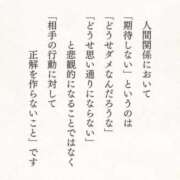 人間関係において
「期待しない」というのは
「どうせダメなんだろうな」
「どうせ思い通りにならない」
と悲観的になることではなく
「相手の行動に対して
正解を作らないこと」です